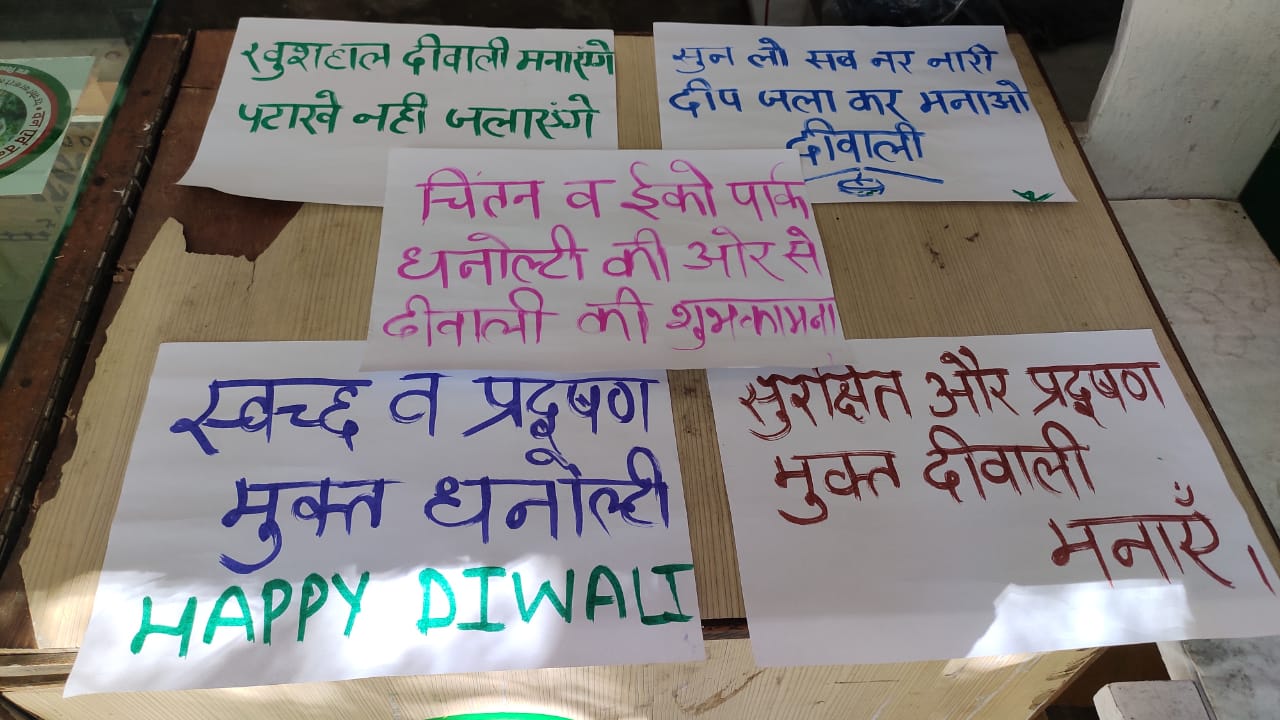 खुशहाल दीवाली मनाएंगे
पटाखे नही जलाएंगे
सुन लो सब नर नारी
दीप जला कर मनाओ
दीवाली
चिंतन व ईको पार्क
धनोल्टी की ओर से
दीवाली की शुभकामना
स्वच्छ व प्रदूषण
मुक्त धनोल्टी
HAPPY DIWALI
सुरक्षित और प्रदूषण
मुक्त दीवाली
मनाएँ।